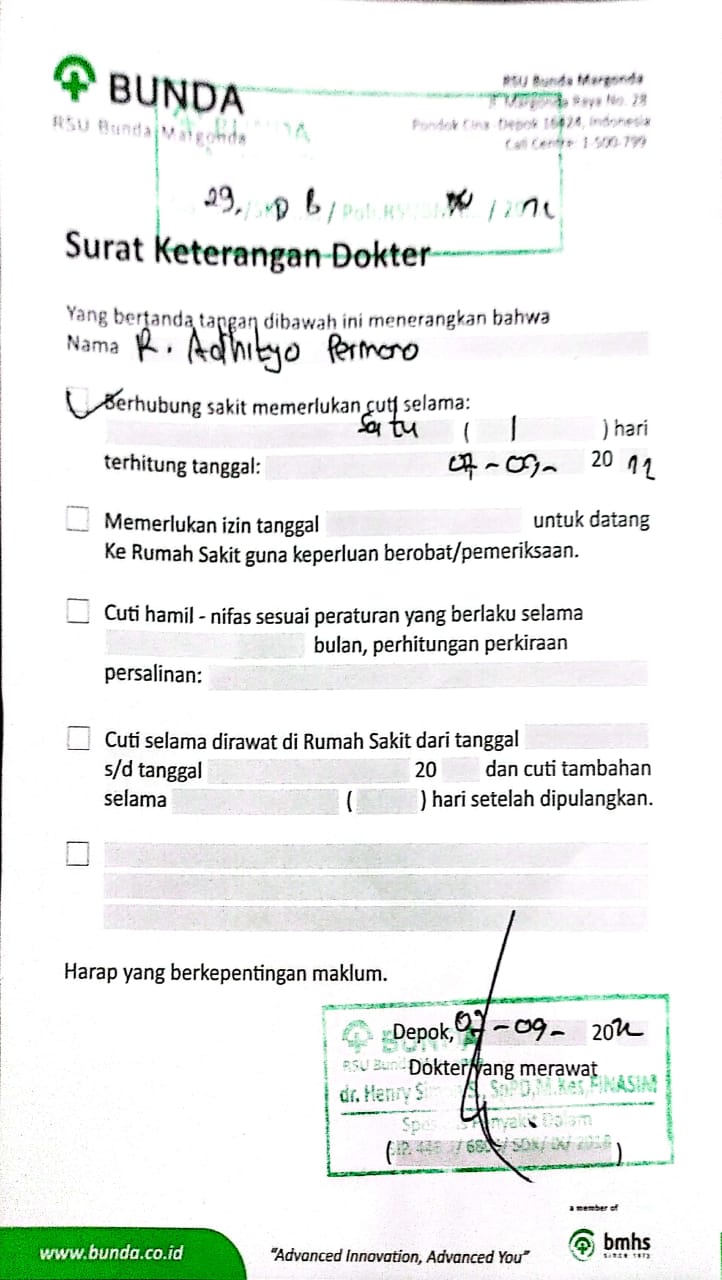 BUNDA
RSU Bunda Margonda
RSU Bunda Margonda
Jl Margonda Raya No. 28
Pondok Cina - Depok 16424, Indonesia
Call Centre: 1-500-799
29 / / Poli. / 20
Surat Keterangan Dokter
Yang bertanda tangan dibawah ini menerangkan bahwa
Nama R. Adhityo Permono
Berhubung sakit memerlukan cuti selama:
Satu ( 1 ) hari
terhitung tanggal: 07-09- 20 22
Memerlukan izin tanggal untuk datang
Ke Rumah Sakit guna keperluan berobat/pemeriksaan.
Cuti hamil - nifas sesuai peraturan yang berlaku selama
bulan, perhitungan perkiraan
persalinan:
Cuti selama dirawat di Rumah Sakit dari tanggal
s/d tanggal 20 dan cuti tambahan
selama ( ) hari setelah dipulangkan.
Harap yang berkepentingan maklum.
Depok, 07-09- 2022
BUNDA
RSU Bunda
Dokter yang merawat
dr. Henry , SpPD,M.Kes,FINASIM
Penyakit Dalam
( )
a member of
bmhs
SINCE 1973
www.bunda.co.id
"Advanced Innovation, Advanced You"